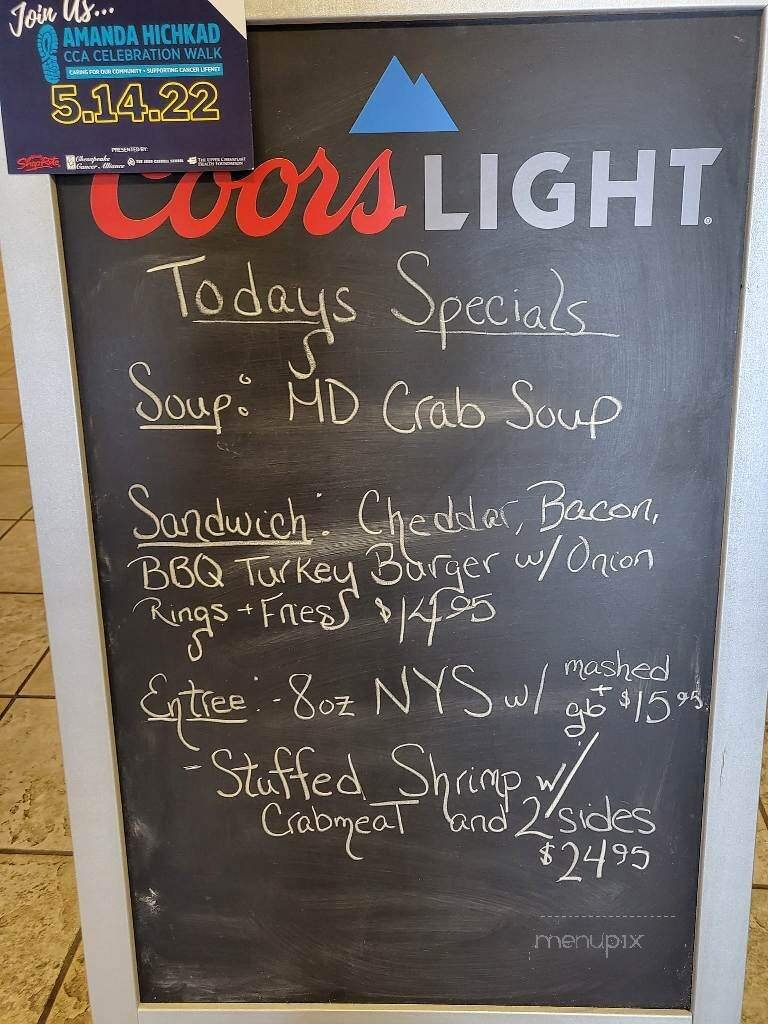 Join Us...
AMANDA HICHKAD
CCA CELEBRATION WALK
CARING FOR OUR COMMUNITY • SUPPORTING CANCER LIFENET
5.14.22
PRESENTED BY:
ShopRite Chesapeake Cancer Alliance THE JOHN CARROLL SCHOOL THE UPPER CHESAPEAKE HEALTH FOUNDATION
Coors LIGHT
Todays Specials
Soup: MD Crab Soup
Sandwich: Cheddar, Bacon,
BBQ Turkey Burger w/ Onion
Rings + Fries $14.95
Entree: - 8oz NYS w/ mashed + gb $15.95
- Stuffed Shrimp w/
Crabmeat and 2 sides
$24.95
menupix